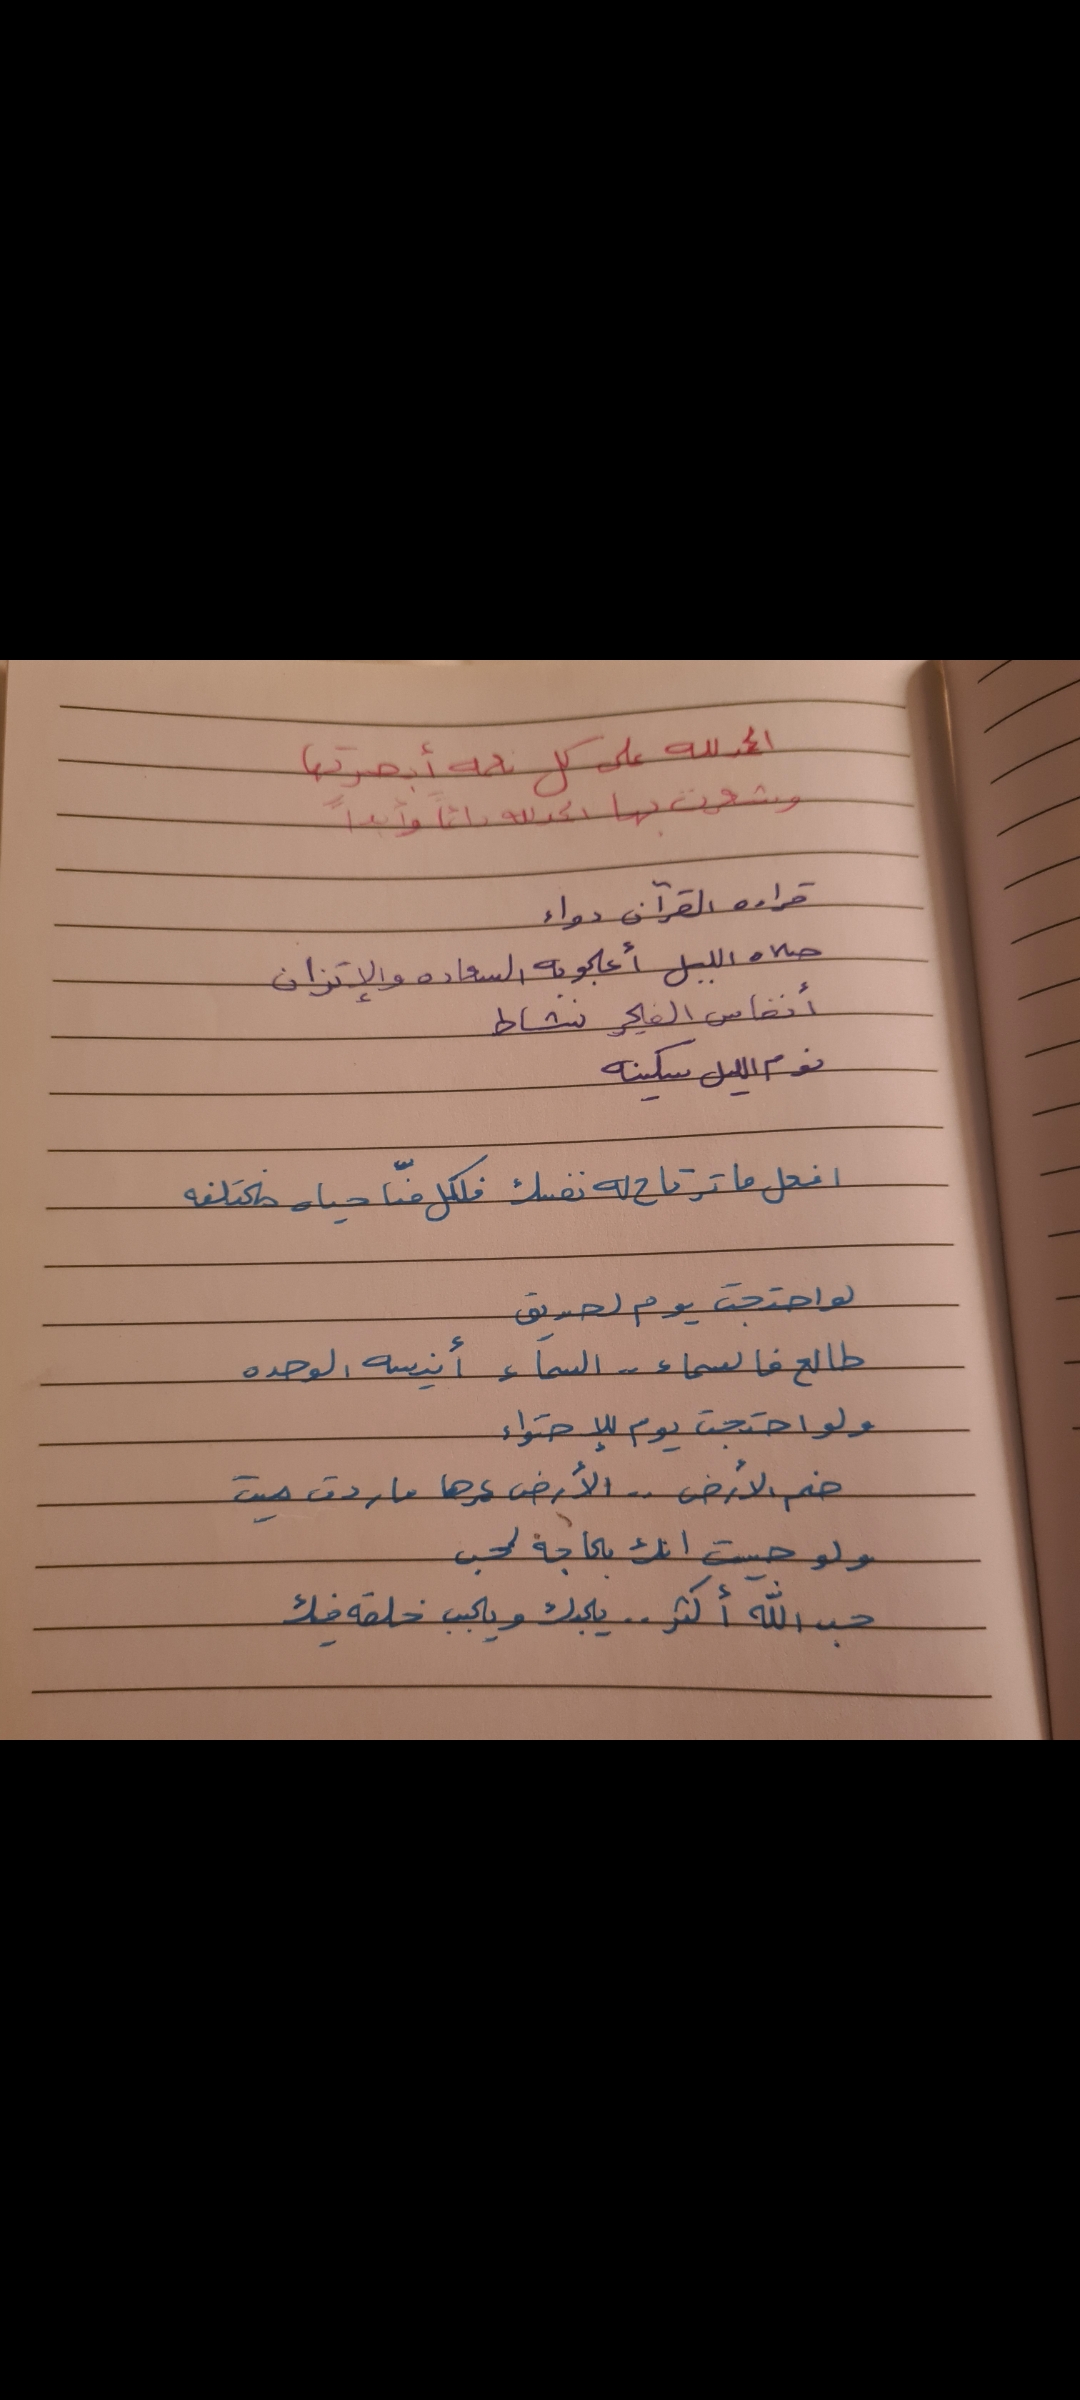 الحمدلله على كل نعمه أبصرتها
وشعرت بها الحمدلله دائماً وأبداً
قراءه القرآن دواء
صلاه الليل أعجوبه السعاده والإتزان
أنفاس الفجر نشاط
نوم الليل سكينه
افعل ما ترتاح له نفسك فلكل منّا حياه مختلفه
لو احتجت يوم لصديق
طالع فالسماء .. السماء أنيسه الوحده
ولو احتجت يوم للإحتواء
ضم الأرض .. الأرض عمرها ماردت ميت
ولو حسيت انك بحاجة لحب
حب الله أكثر .. يحبك ويحبب خلقه فيك